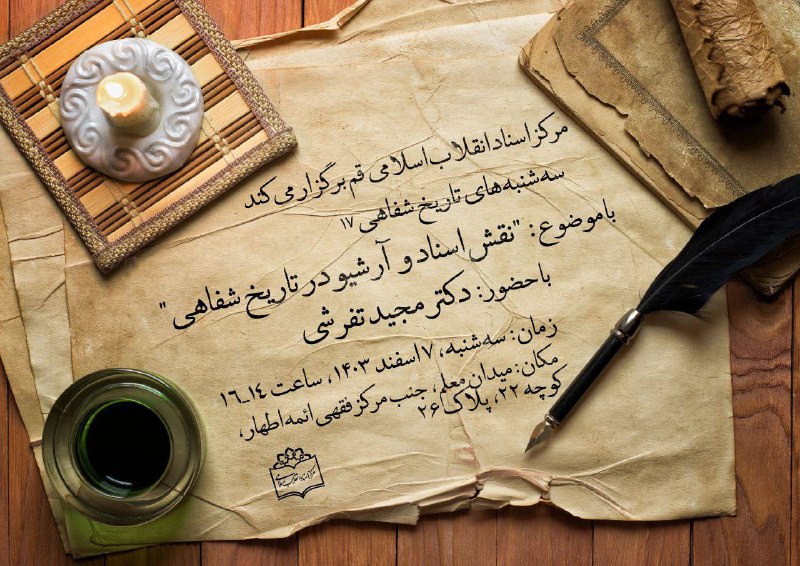 مرکز اسناد انقلاب اسلامی قم برگزار می کند
سه‌شنبه‌های تاریخ شفاهی ۱۷
باموضوع: "نقش اسناد و آرشیو در تاریخ شفاهی"
باحضور: دکتر مجید تفرشی
زمان: سه‌شنبه، ۷ اسفند ۱۴۰۳، ساعت ۱۴-۱۶
مکان: میدان معلم، جنب مرکز فقهی ائمه اطهار،
کوچه ۲۲، پلاک ۲۶
مرکز اسناد انقلاب اسلامی